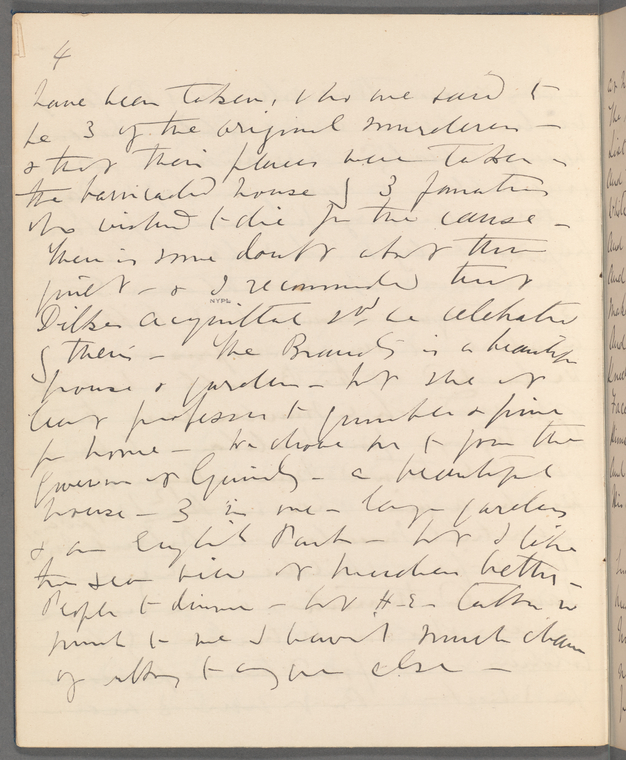 4
have been taken, who are said to
be 3 of the original murderers –
& that their places were taken in
the barricaded house by 3 fanatics
who wished to die for the cause –
There is some doubt about their
guilt – & I recommended that
NYPL
Dilke's acquittal shd. be celebrated
by theirs – The Brand's is a beautiful
house & garden – but she at
least professes to grumble & pine
for home – We drove on to join the
Governor at Guindy – a beautiful
house – 3 in one – large gardens
& an English Park – but I like
the sea view at better –
People to dinner – but H.E. talks so
much to me I haven't much chance
of talking to anyone else –